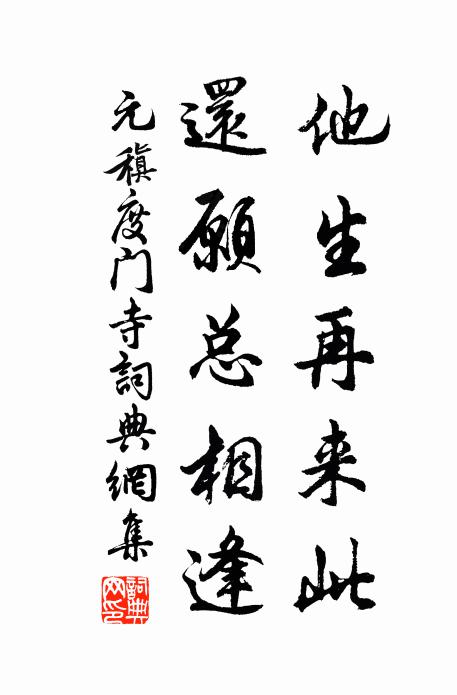 他生再来此
還願总相逢
元稹度门寺詞典網集
詞典网印